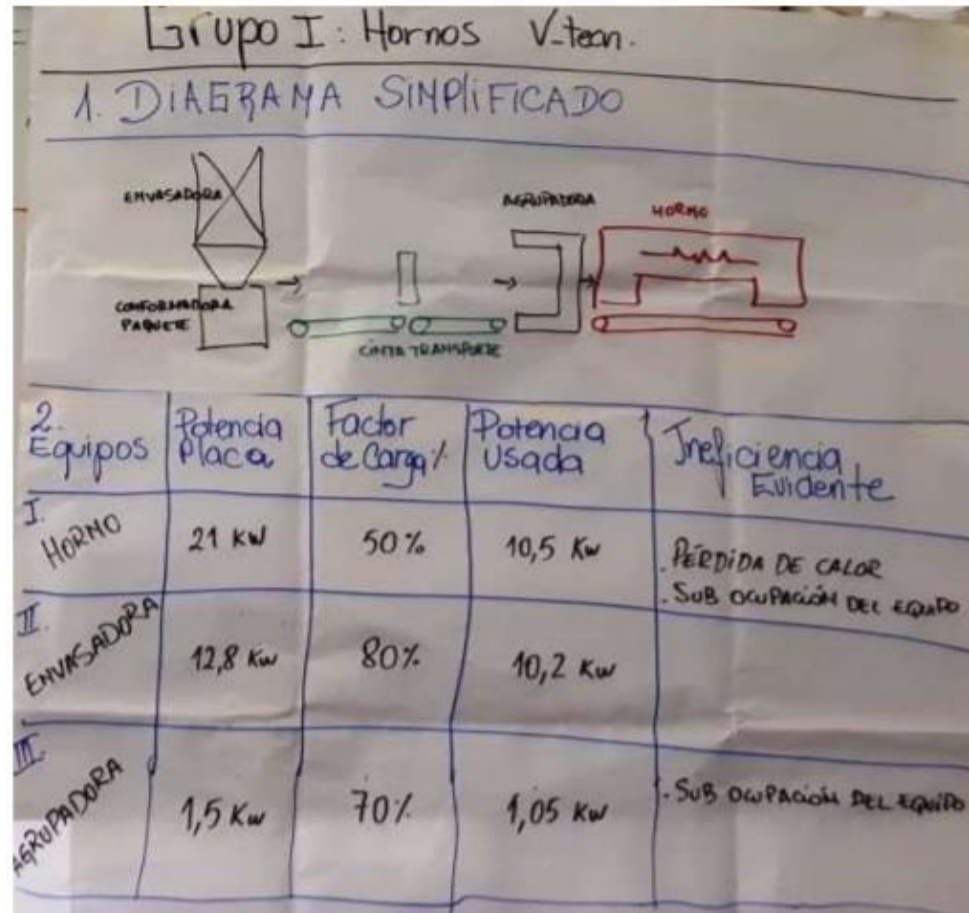 Grupo I: Hornos V-tean.
1. DIAGRAMA SIMPLIFICADO
ENVASADORA
AGRUPADORA
HORNO
CONFORMADORA
PAQUETE
CINTA TRANSPORTE
2.
Equipos
Potencia
Placa
Factor
de Carga %
Potencia
Usada
Ineficiencia
Evidente
I.
HORNO
21 KW
50%
10,5 KW
. PÉRDIDA DE CALOR
. SUB OCUPACIÓN DEL EQUIPO
II.
ENVASADORA
12,8 KW
80%
10,2 KW
III.
AGRUPADORA
1,5 KW
70%
1,05 KW
. SUB OCUPACIÓN DEL EQUIPO